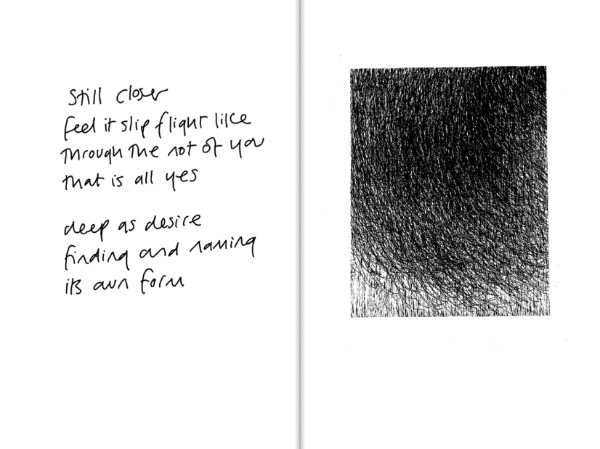 still closer
feel it slip flight like
through the not of you
that is all yes
deep as desire
finding and naming
its own form